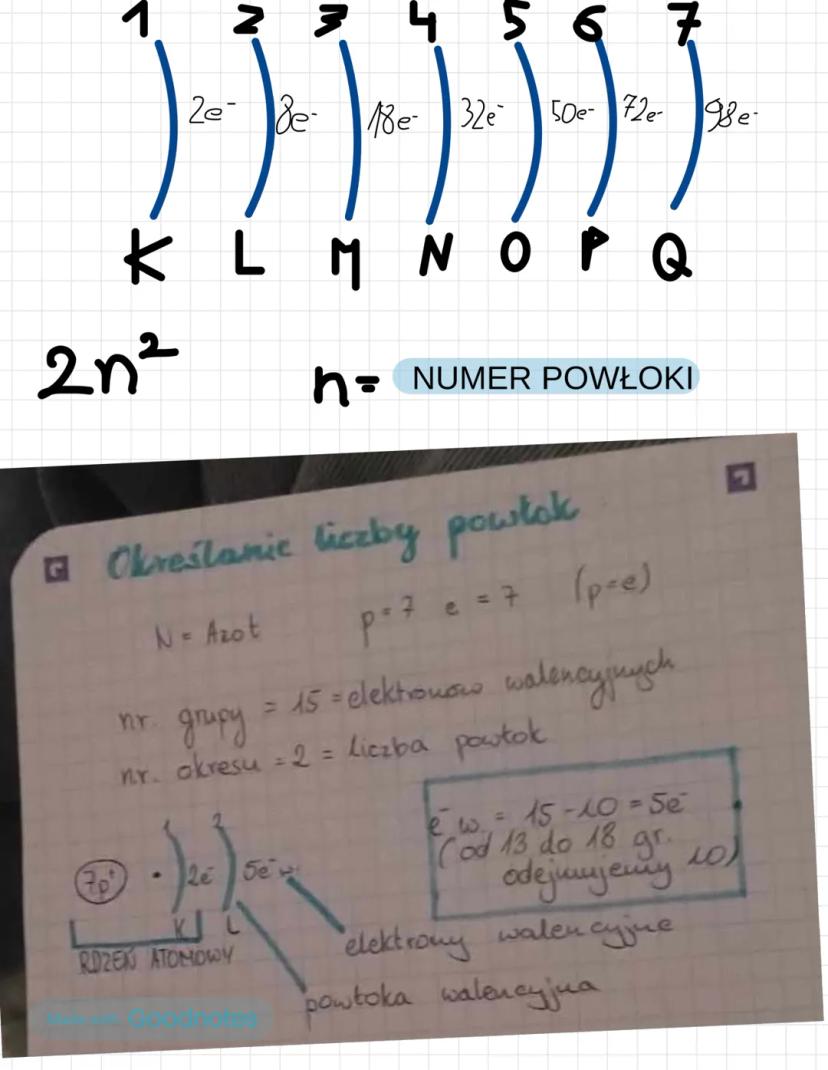 1 2 3 4 5 6 7
2e⁻ 8e⁻ 18e⁻ 32e⁻ 50e⁻ 72e⁻ 98e⁻
K L M N O P Q
2n² n= NUMER POWŁOKI
Określanie liczby powłok
N = Azot p=7 e=7 (p=e)
nr. grupy = 15 = elektronów walencyjnych
nr. okresu = 2 = liczba powłok
e⁻ w. = 15 - 10 = 5e⁻
(od 13 do 18 gr.
odejmujemy 10)
1 2
7p⁺ 2e⁻ 5e⁻ w.
K L
RDZEŃ ATOMOWY
elektrony walencyjne
powłoka walencyjna
Made with Goodnotes